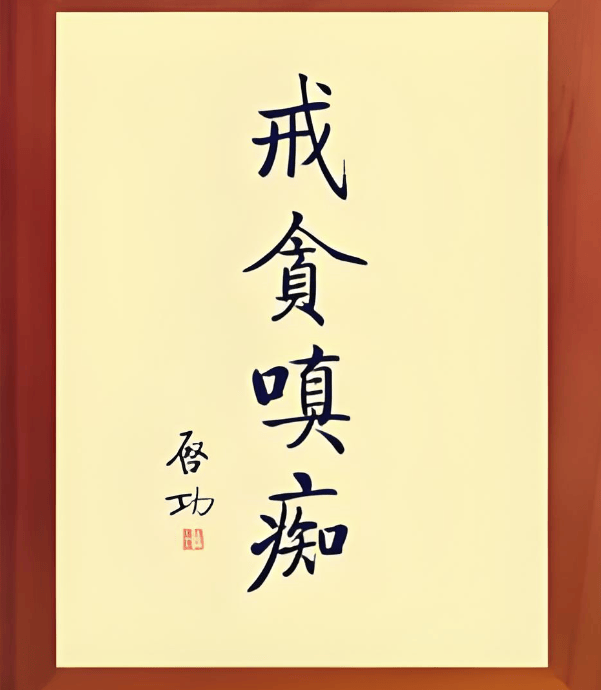 戒貪嗔痴
啓功